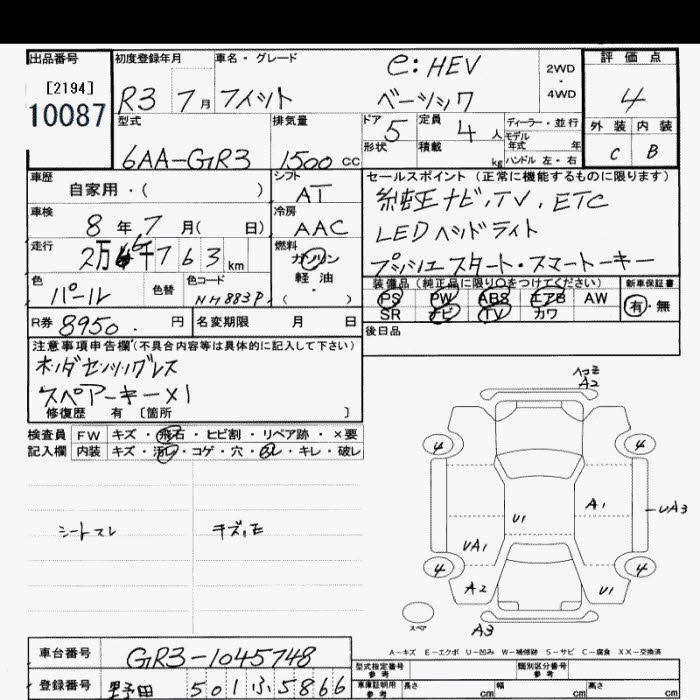 出品番号
[2194]
10087
初度登録年月 車名・グレード
R3 7月 フィット e:HEV ベーシック
2WD
・
4WD
評価点
4
外装 内装
C B
型式 排気量 ドア 定員 ディーラー・並行
6AA-GR3 1500 CC 5 4人 モデル年式 年
形状 積載 kg ハンドル 左・右
車歴 自家用・( )
シフト AT
セールスポイント(正常に機能するものに限ります)
純正ナビ,TV,ETC
LEDヘッドライト
プッシュスタート・スマートキー
車検 8年7月( 日)
冷房 AAC
走行 2万 6千763km
燃料 ガソリン
軽油
・
( )
色 パール 色替 色コード NH883P
装備品(純正品に限り○をつけてください) 新車保証書
PS PW ABS エアB AW 有・無
SR ナビ TV カワ
R券 8950. 円 名変期限 月 日
後日品
注意事項申告欄(不具合内容等は具体的に記入して下さい)
ホンダセンシングレス
スペアーキー×1
修復歴 有 〔箇所 〕
検査員 FW キズ・飛石・ヒビ割・リペア跡・×要
記入欄 内装 キズ・汚れ・コゲ・穴・スレ・キレ・破レ
シートスレ キズ,モ
A2
4 4
A1 UA3
U1
UA1
4 4
A2 U1
スペア
A3
A-キズ E-エクボ U-凹み W-補修跡 S-サビ C-腐食 XX-交換済
車台番号 GR3-1045748
登録番号 野田 501 ふ 5866
型式指定番号 参考 類別区分番号 参考
車庫証明用 参考 長さ cm 幅 cm 高さ cm